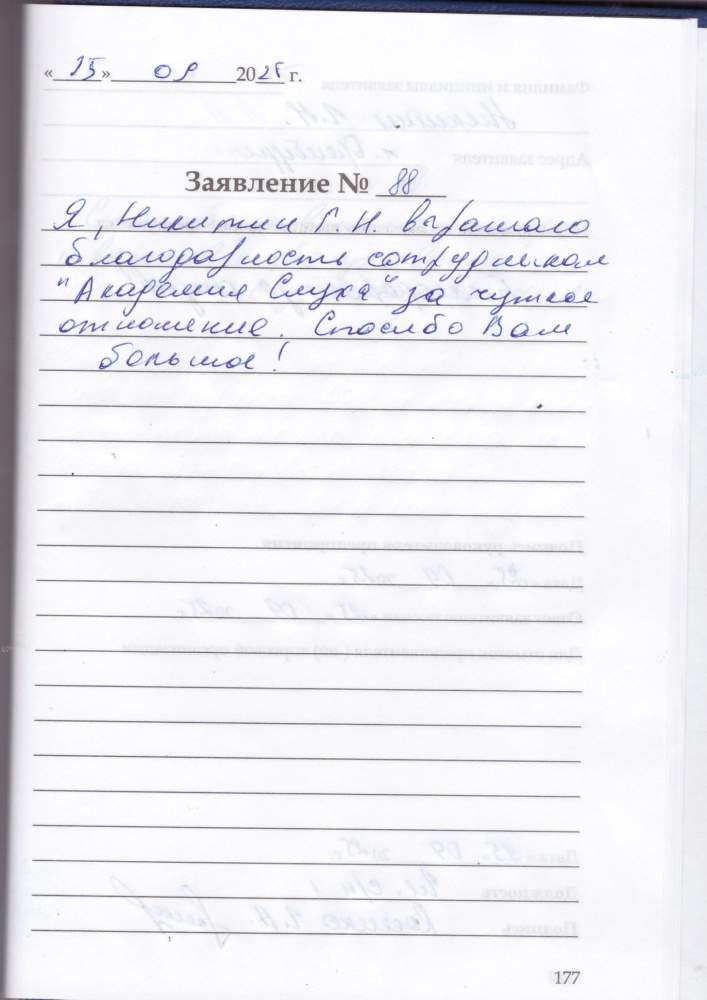 «25» 09 2025 г.
Заявление № 88
Я, Никитин Г. Н. выражаю
благодарность сотрудникам
"Академия Слуха" за чуткое
отношение. Спасибо Вам
большое!
177